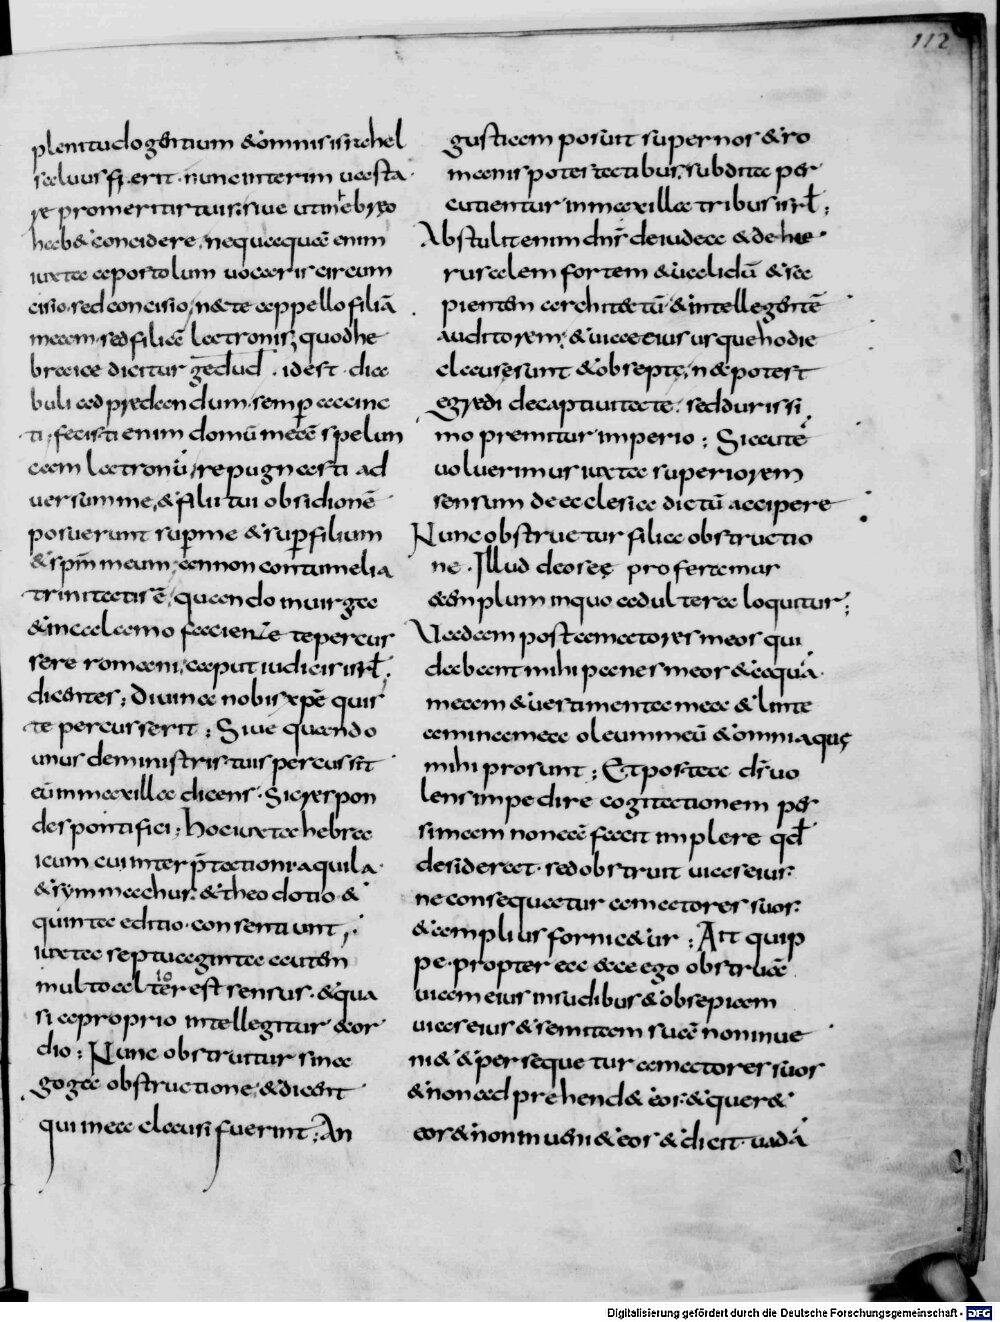 112
plenitudo gentium & omnis israhel
saluus fierit · nunc interim uasta
re promeritur tuis · siue ut in hebreo
hab& concidere, nequaquã enim
iuxta apostolum uocaris circum
cisio · sed concisio, n& te appello filiã
meam · sed filiã latronis, quod he
braice dicitur gedud · idest dia
buli ad predandum · semp accinc
ti; fecisti enim domũ meã spelun
cam latronũ, repugnasti ad
uersum me, & filii tui obsidionẽ
posuerunt sup me & sup filium
& spm meum, an non contumelia
trinitatis ẽ, quando in uirga
& in calamo faciente te percus
sere romani, caput iudicis isrl,
dicentes; Diuina nobis xpẽ quis
te percusserit; Siue quando
unus de ministris tuis percussit
eũ in maxilla dicens · Sic respon
des pontifici; Hoc iuxta hebra
icum cui interptationi aquila ·
& symmachus · & theodotio · &
quinta editio · consentiunt;
iuxta septuaginta autem
multo alter est sensus · & qua
si a proprio intellegitur & or
dio; Nunc obstruitur sina
goga obstructione, & dicent
qui in ea clausi fuerint; An
gustiam posuit super nos & ro
manis potestatibus, subdita per
cutientur in maxilla tribus isrl;
Abstulit enim dns de iudea & de hie
rusalem fortem & ualidũ & sa
pientem architectũ & intellegentẽ
auditorem, & uiae eius usque hodie
clausę sunt & obseptę, n& potest
egredi de captiuitate · sed durissi
mo premitur imperio; Si autẽ
uoluerimus iuxta superiorem
sensum de ecclesia dictũ accipere
Nunc obstruetur filia obstructio
ne · Illud de osee proferamus
exemplum in quo adultera loquitur;
Uadam post amatores meos qui
dabant mihi panes meos & aquã
meam & uestimenta mea & linte
amina mea oleum meũ & omnia quę
mihi prosunt; Et postea ds uo
lens impedire cogitationem per
simam non eã fecit implere qd
desideret · sed obstruit uias eius
ne consequatur amatores suos
& amplius fornic&ur; Ait quip
pe · propter ea ecce ego obstruã
uiam eius in sudibus & obsepiam
uias eius & semitam suã non inue
ni& & persequetur amatores suos
& non adprehend& eos · & quer&
eos & non inueni& eos & dicit · uadã
Digitalisierung gefördert durch die Deutsche Forschungsgemeinschaft · DFG